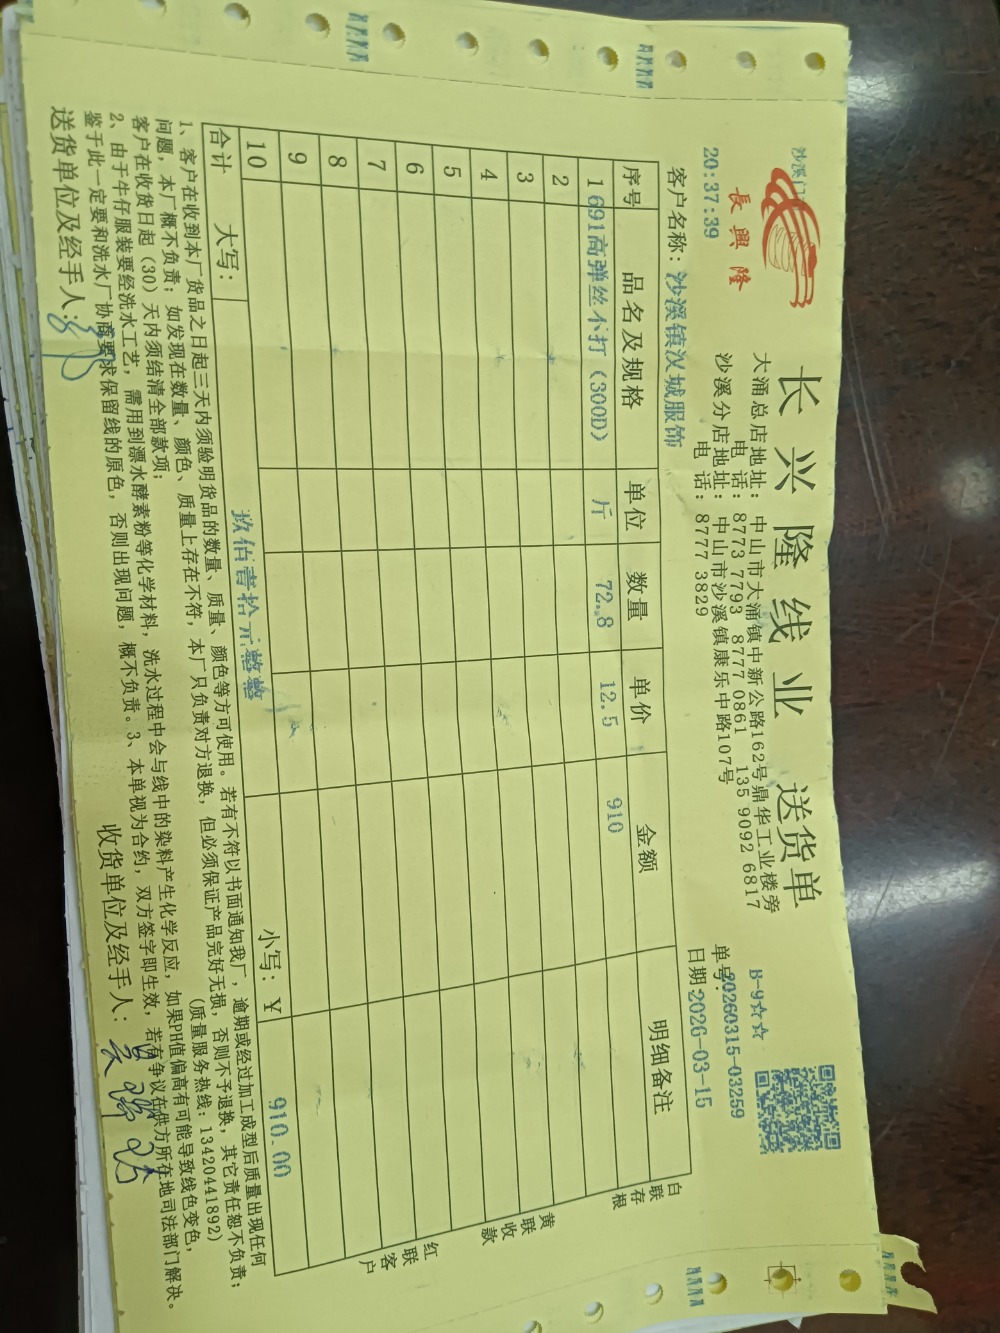 長興隆
长兴隆线业 送货单
B-9☆☆
大涌总店地址: 中山市大涌镇中新公路162号鼎华工业楼旁
电 话: 8773 7793 8777 0861 135 9092 6817
沙溪分店地址: 中山市沙溪镇康乐中路107号
电 话: 8777 3829
20:37:39
单号:20260315-03259
客户名称: 沙溪镇汉城服饰
日期:2026-03-15
序号 品名及规格 单位 数量 单价 金额 明细备注
1 691高弹丝不打(300D) 斤 72.8 12.5 910
2
3
4
5
6
7
8
9
10
合计 大写: 玖佰壹拾元整 小写: ¥ 910.00
白联存根
黄联收款
红联客户
1、客户在收到本厂货品之日起三天内须验明货品的数量、质量、颜色等方可使用。若有不符以书面通知我厂,逾期或经过加工成型后质量出现任何
问题,本厂概不负责;如发现在数量、颜色、质量上存在不符,本厂只负责对方退换,但必须保证产品完好无损,否则不予退换,其它责任恕不负责;
客户在收货日起(30)天内须结清全部款项; (质量服务热线: 13420441892)
2、由于牛仔服装要经洗水工艺,需用到漂水酵素粉等化学材料,洗水过程中会与线中的染料产生化学反应,如果PH值偏高有可能导致线色变色,
鉴于此一定要和洗水厂协商要求保留线的原色,否则出现问题,概不负责。3、本单视为合约,双方签字即生效,若有争议在供方所在地司法部门解决。
送货单位及经手人: 收货单位及经手人: